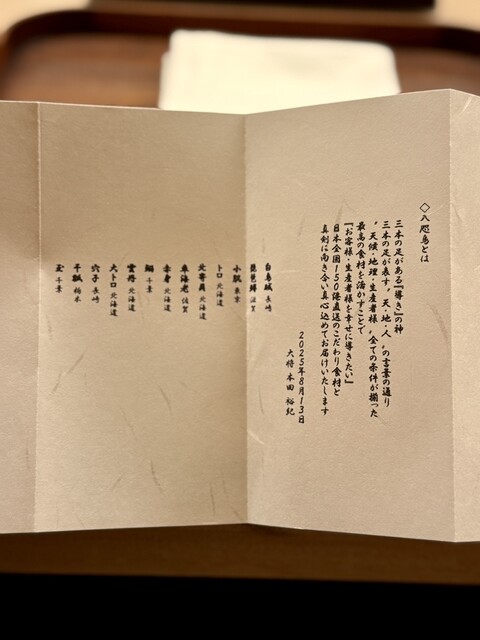 ◇八咫烏とは
三本の足がある『導き』の神
三本の足が表す〝天・地・人〟の言葉の通り
〝天候・地理・生産者様〟全ての条件が揃った
最高の食材を活かすことで
『お客様・生産者様を幸せに導きたい』
日本全国150港直送のこだわり食材と
真剣に向き合い真心込めてお届けいたします
2025年8月13日
大将 本田 裕紀
白烏賊 長崎
琵琶鱒 滋賀
小肌 東京
トロ 北海道
北寄貝 北海道
車海老 佐賀
赤身 北海道
千葉
雲丹 北海道
大トロ 北海道
穴子 長崎
干瓢 栃木
玉 千葉